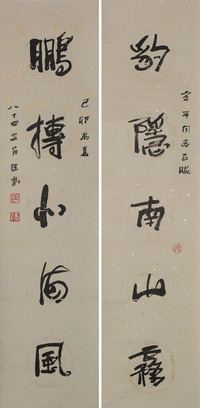 平同志
豹隱南山霧
鵬搏北海風
己卯夏
八十四叟